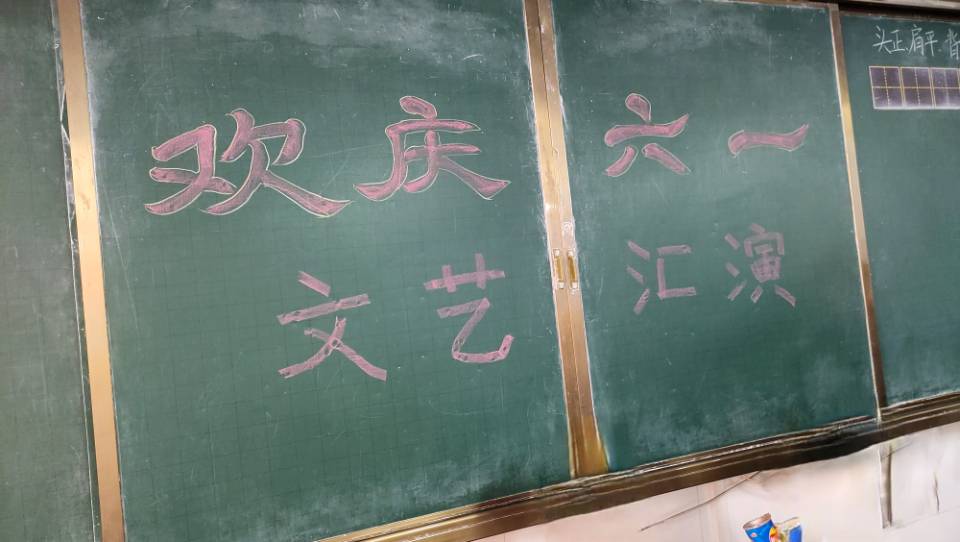 欢庆六一
文艺汇演
头正.肩平.背